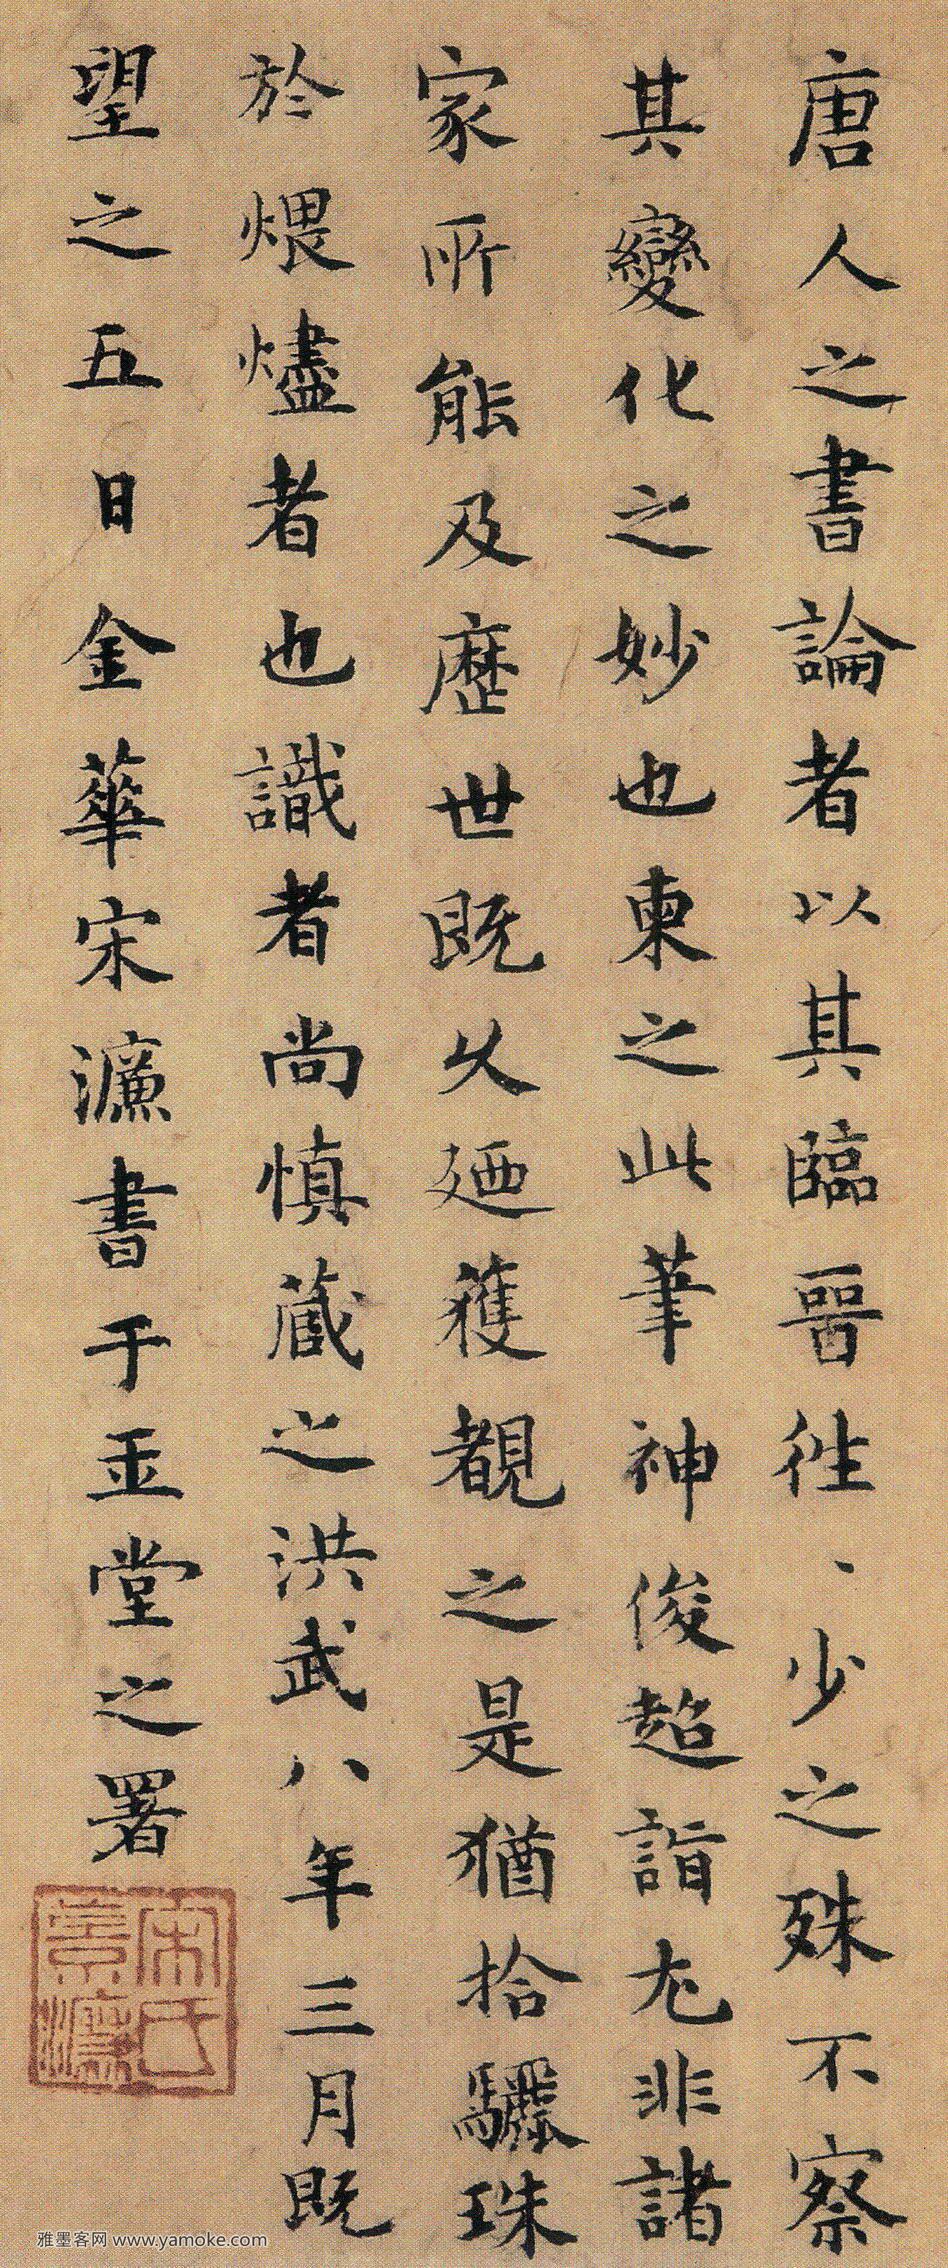 唐人之書論者以其臨晉徃、少之殊不察
其變化之妙也柬之此筆神俊超詣尤非諸
家所能及歷世既久廼獲覩之是猶拾驪珠
於煨燼者也識者尚慎藏之洪武八年三月既
望之五日金華宋濂書于玉堂之署
宋氏
景濂
雅墨客网 www.yamoke.com